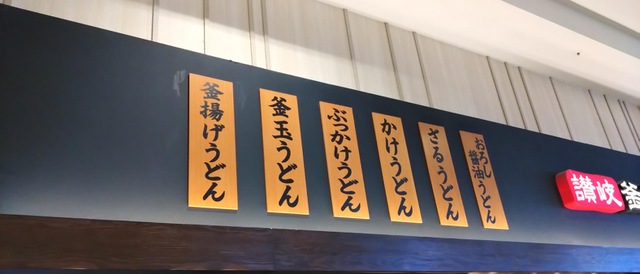 釜揚げうどん
釜玉うどん
ぶっかけうどん
かけうどん
ざるうどん
おろし
醤油うどん
讃岐釜